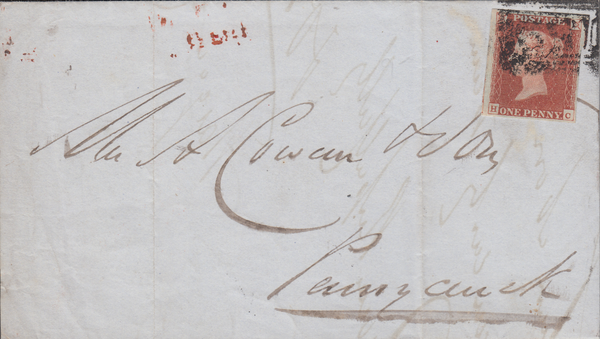 POSTAGE
ONE PENNY
H C
Mr A Cowan & Son
Pennycuick